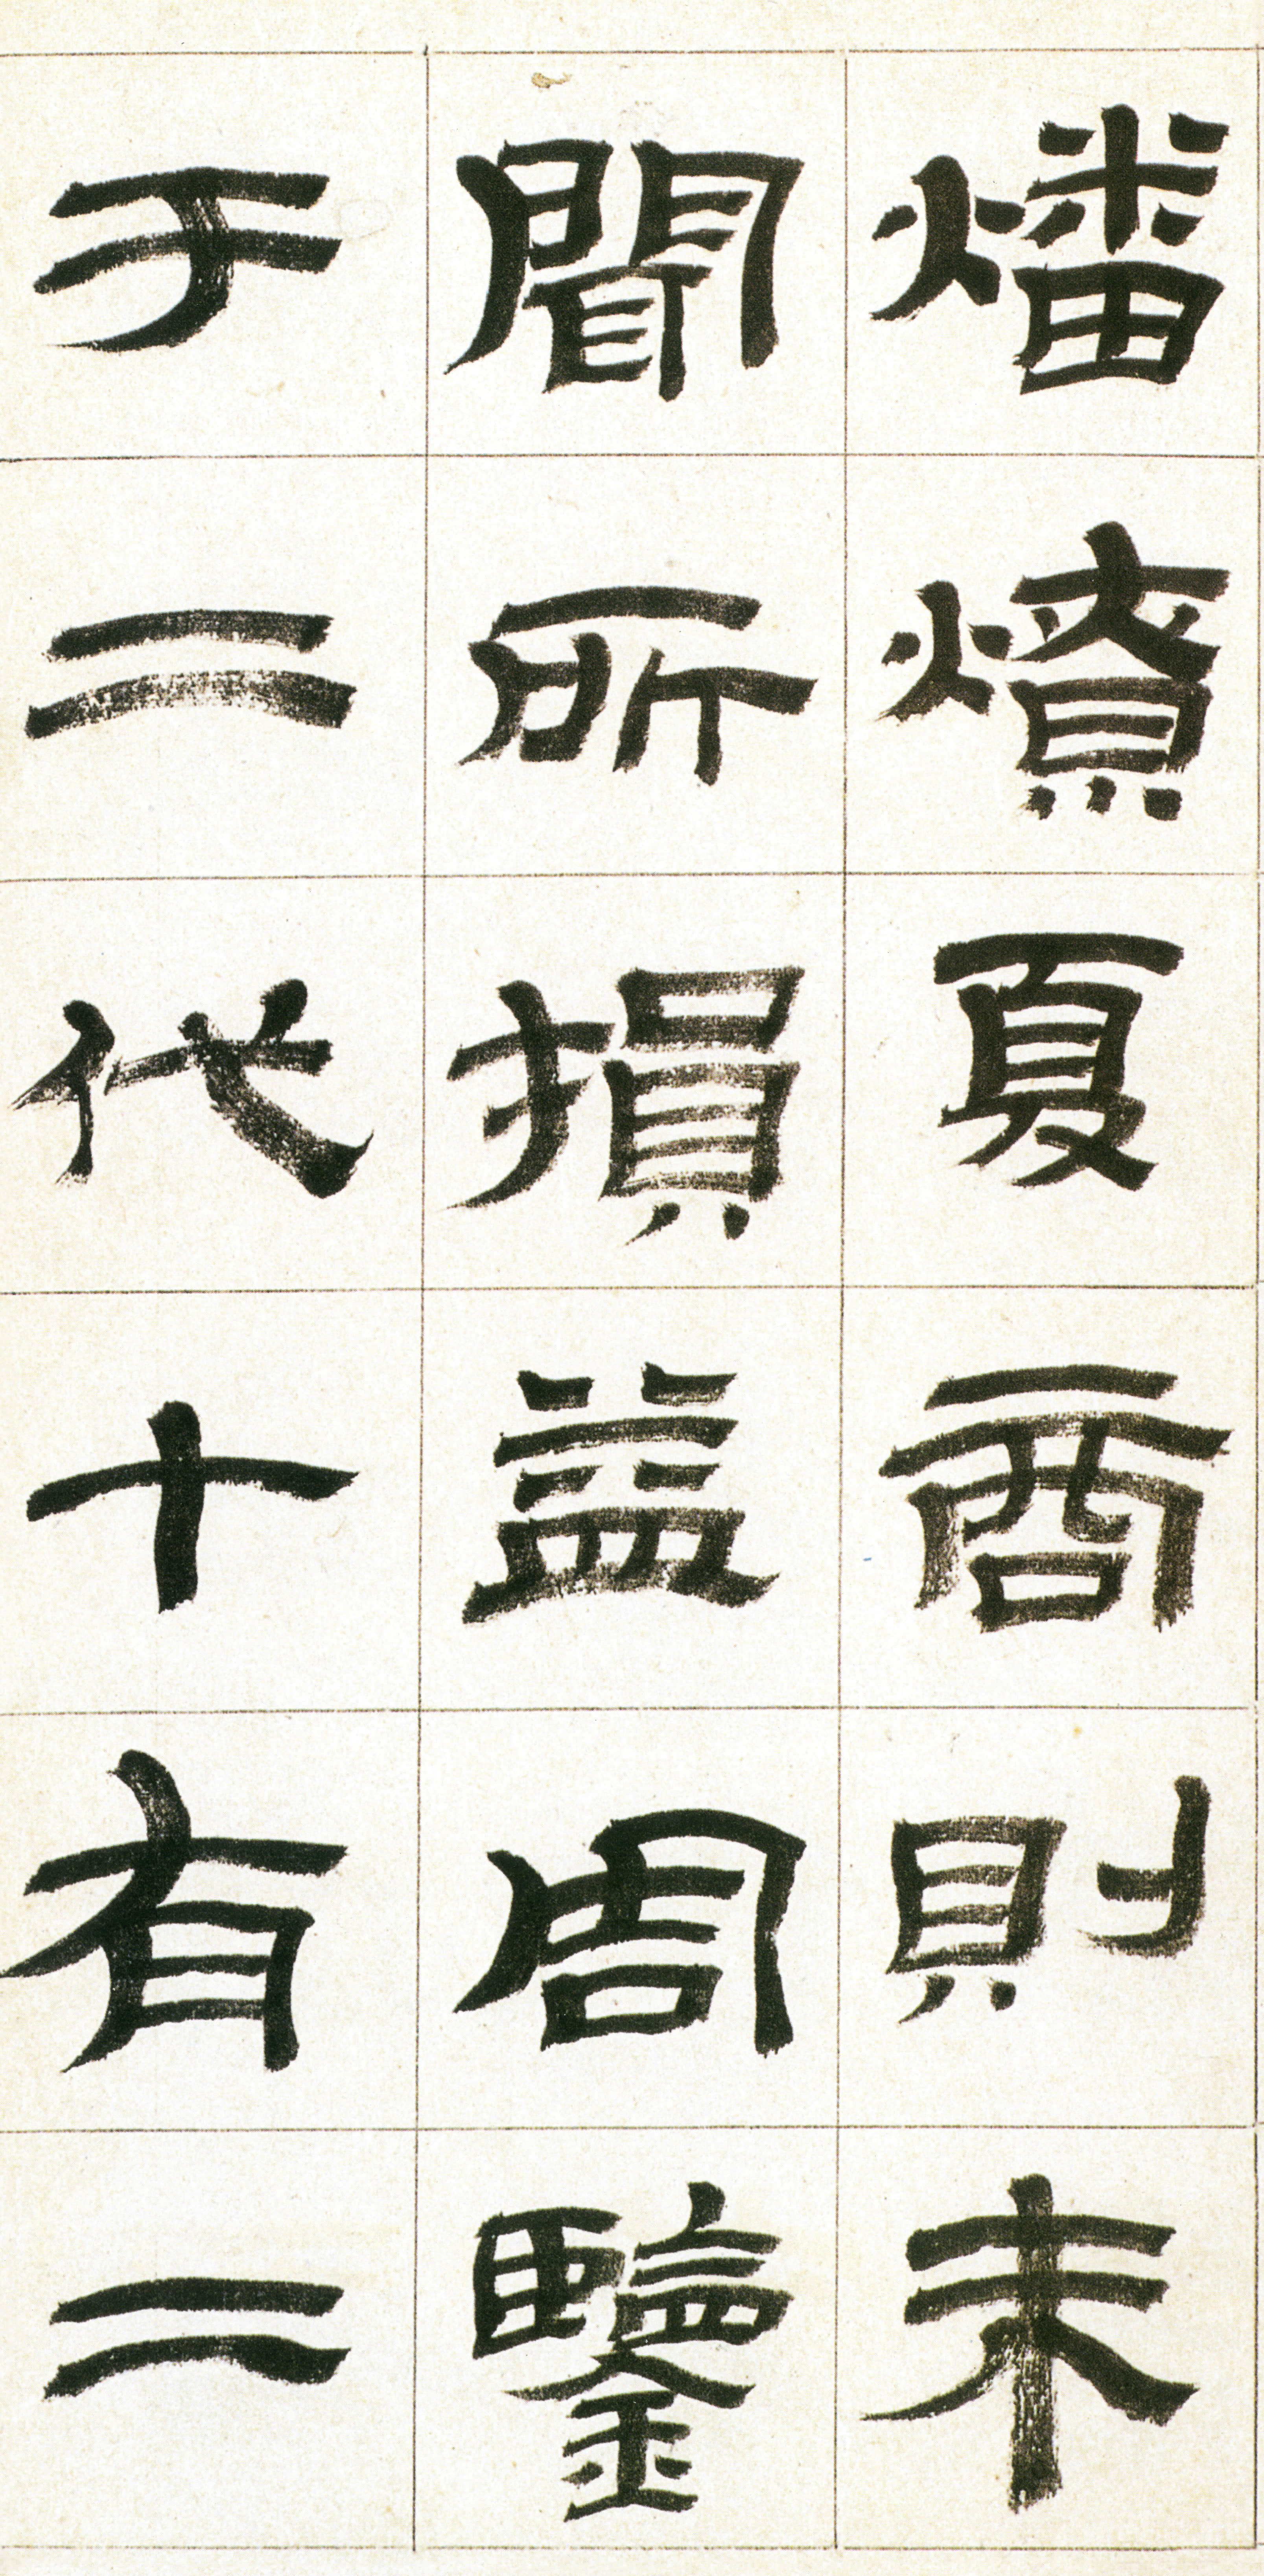 燔燌夏商則未
聞所損益周鑒
于二代十有二